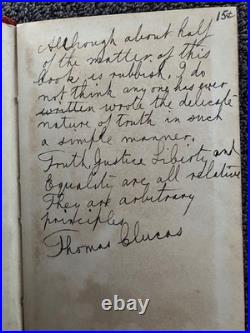 15¢
Although about half
of the matter of this
book is rubbish, I do
not think anyone has ever
written wrote the delicate
nature of truth in such
a simple manner.
Truth, Justice Liberty and
Equality are all relative
They are arbitrary
principles
Thomas Clucas